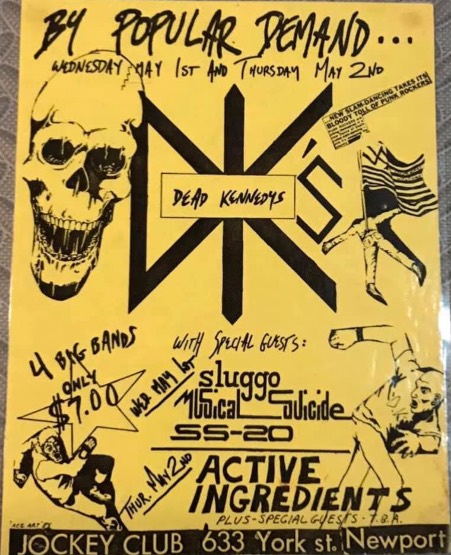 BY POPULAR DEMAND...
WEDNESDAY MAY 1ST AND THURSDAY MAY 2ND
...NEW SLAM-DANCING TAKES ITS
BLOODY TOLL OF PUNK ROCKERS
DK'S
DEAD KENNEDYS
WITH SPECIAL GUESTS:
4 BIG BANDS
ONLY
$7.00
WED MAY 1ST
sluggo
Musical Suicide
SS-20
THUR. MAY 2ND
ACTIVE
INGREDIENTS
PLUS-SPECIAL GUESTS-T.B.A.
JOCKEY CLUB 633 York st. Newport